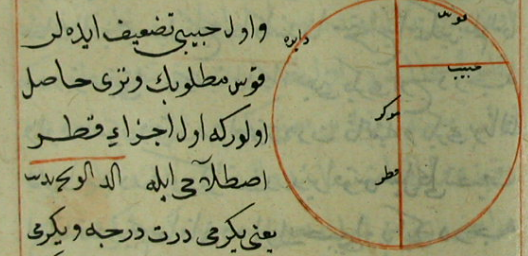 و اول جيبى تضعيف ايده لر
قوس مطلوبك وترى حاصل
اولوركه اول اجزاء قطر
اصطلاحى ايله
يعنى يكرمى درت درجه و يكرمى
قوس
دايره
جيب
مركز
قطر